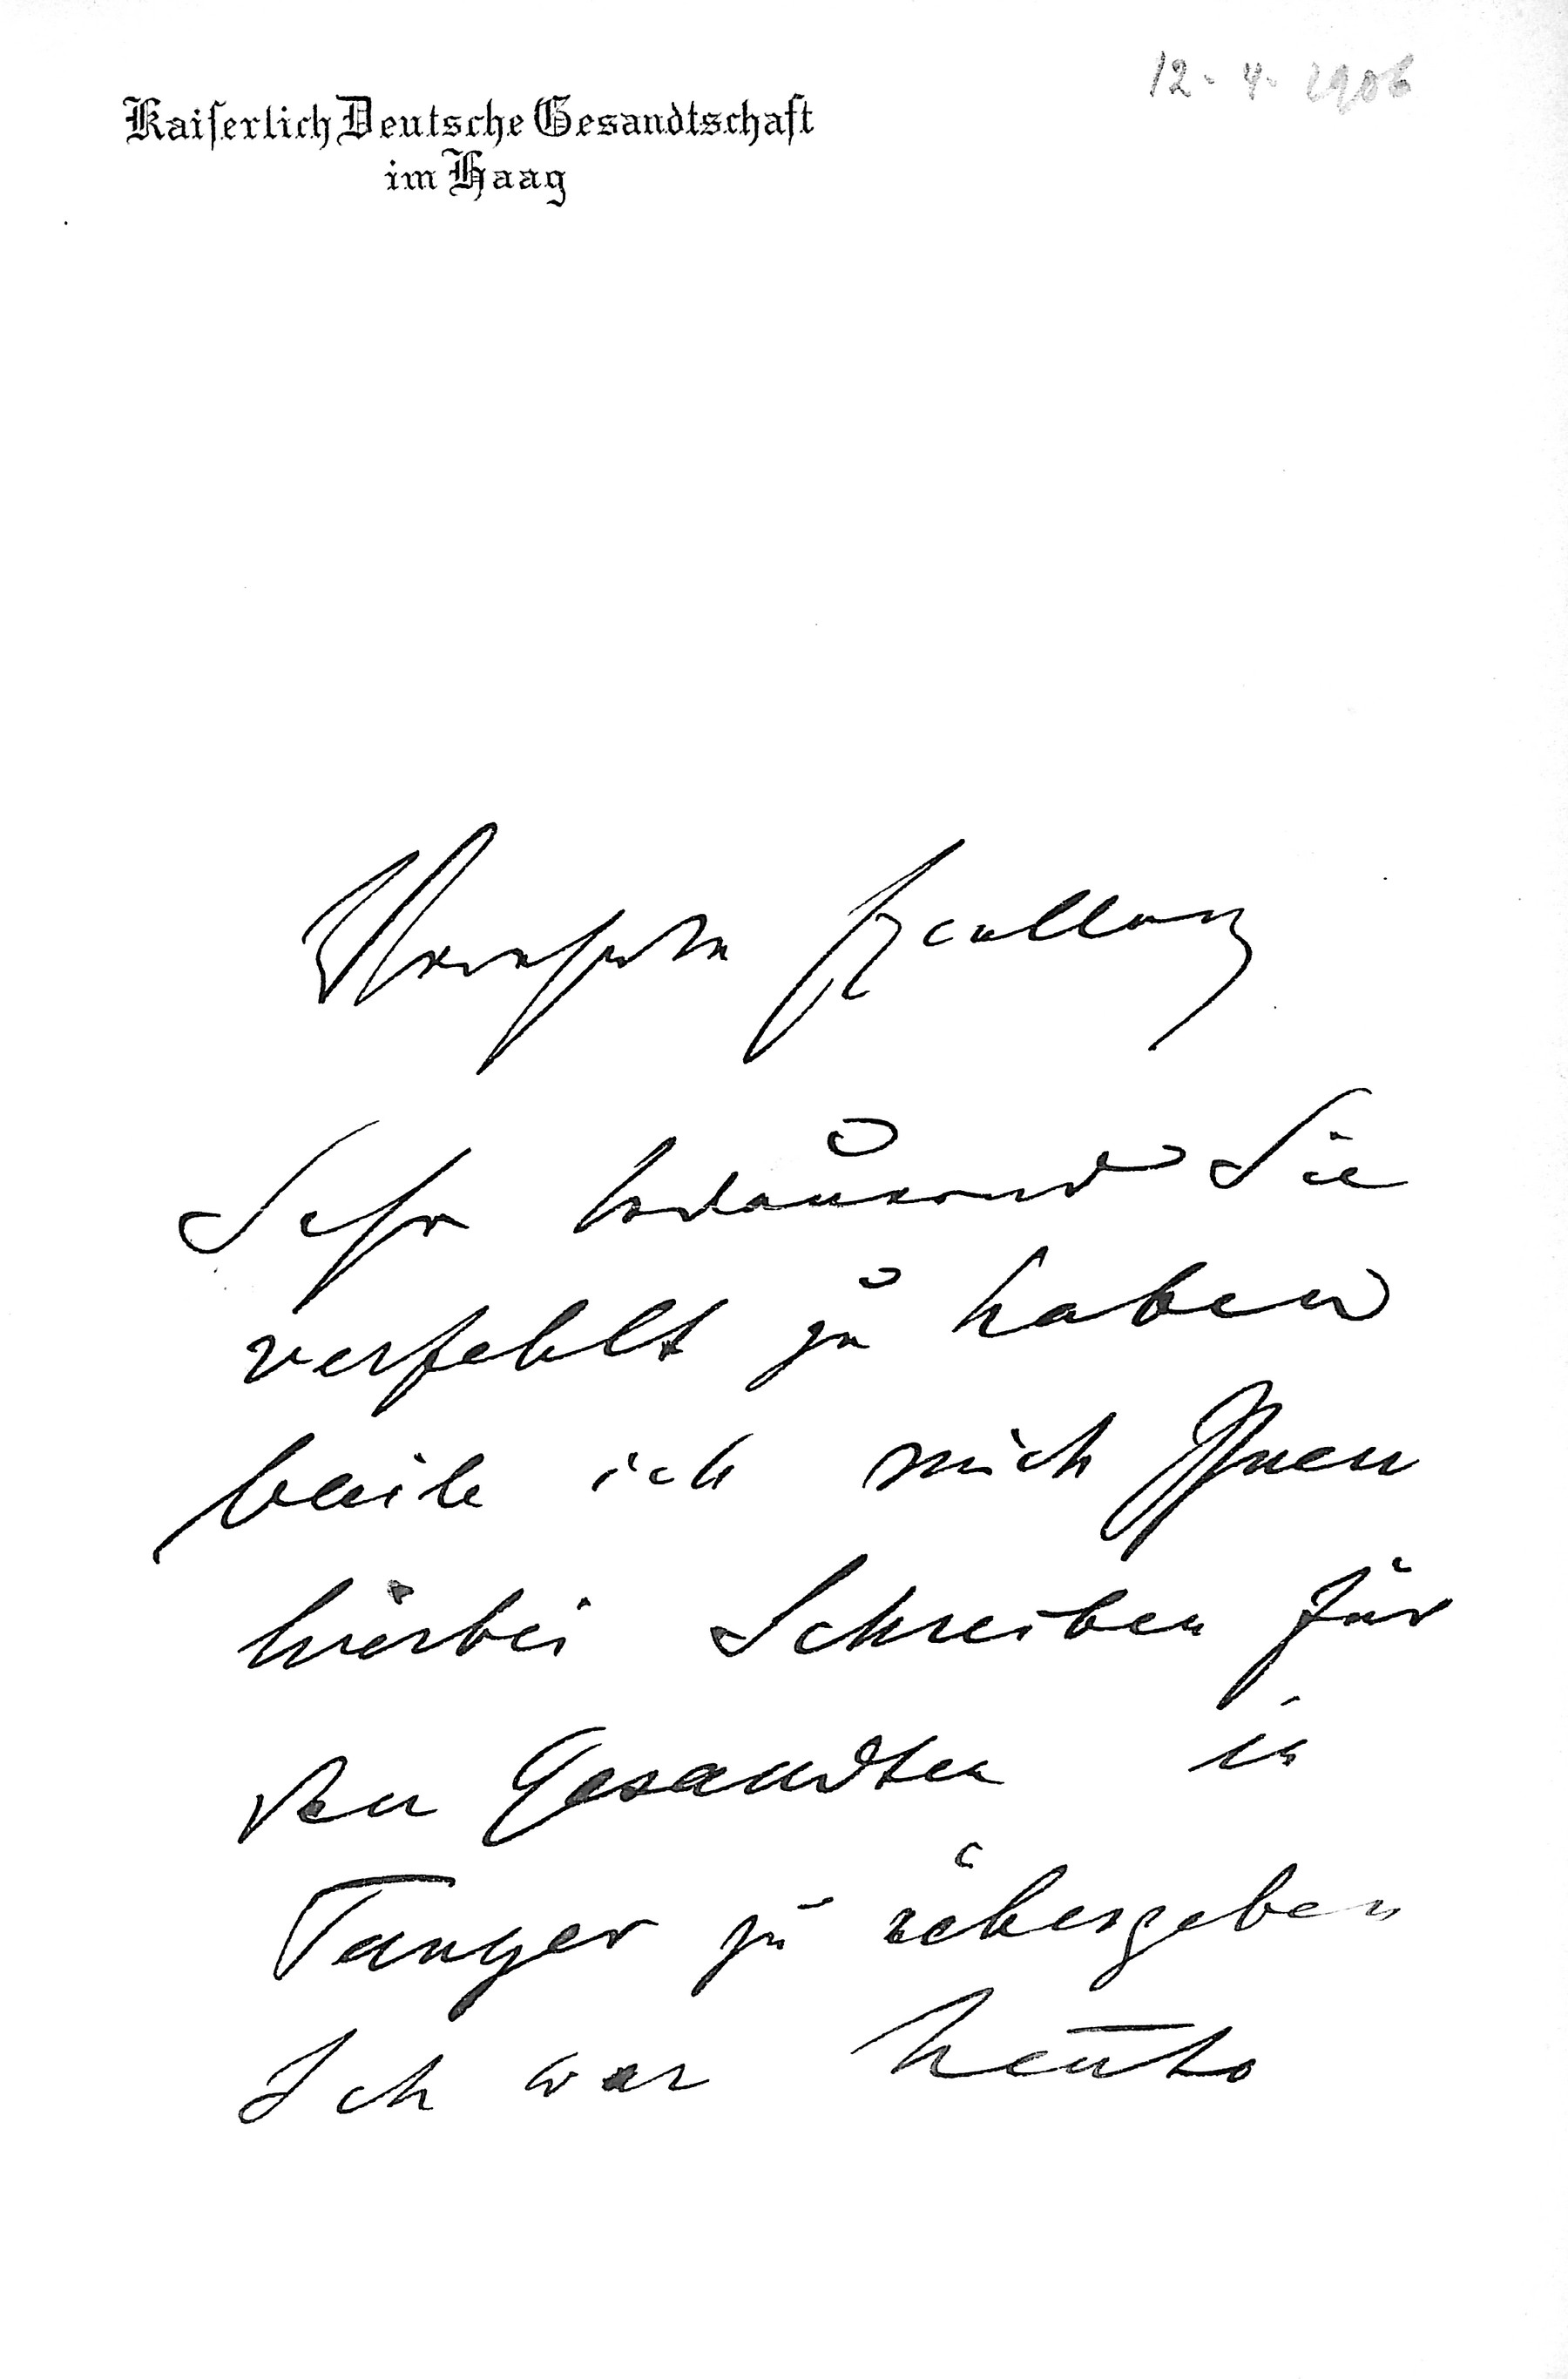 12-4-1906
Kaiserlich Deutsche Gesandtschaft
im Haag
Verehrte Exzellenz
Sehr bedauernd Sie
verfehlt zu haben
beeile ich mich Ihnen
hierbei Schreiben für
den Gesandten in
Tanger zu übergeben
Ich war heute